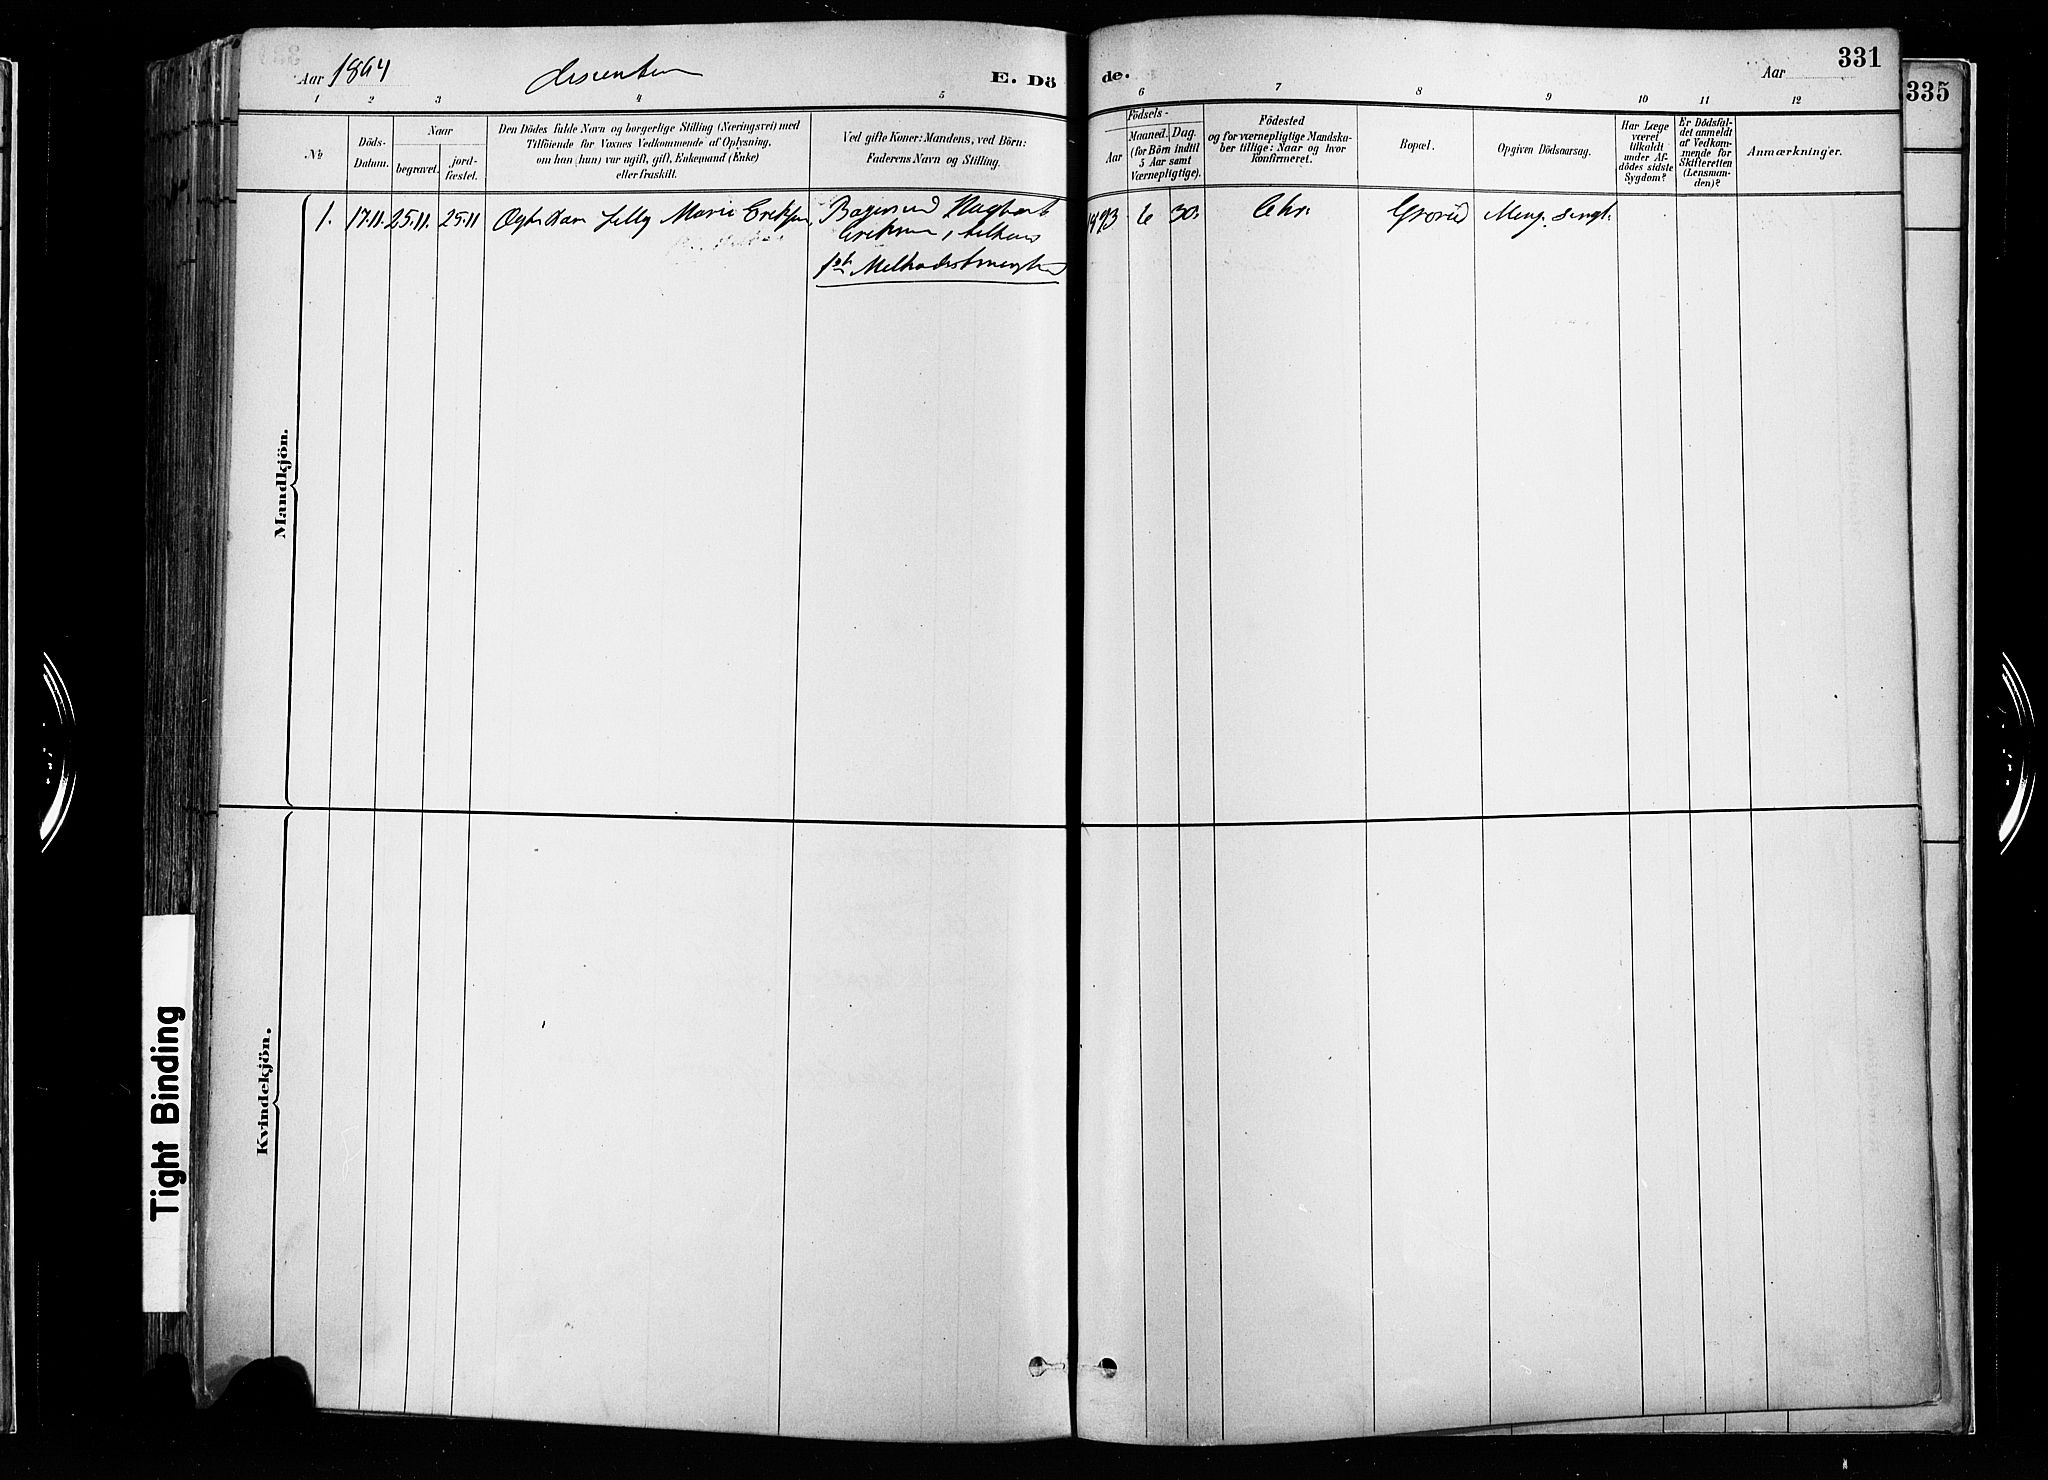 331
335
Aar 1894
E. Dö
de.
Aar
1 2 3 4 5 6 7 8 9 10 11 12
№
Döds-
Datum.
Naar
begravet.
jord-
fæstet.
Den Dödes fulde Navn og borgerlige Stilling (Næringsvei) med
Tilföiende for Voxnes Vedkommende af Oplysning,
om han (hun) var ugift, gift, Enkemand (Enke)
eller fraskilt.
Ved gifte Koner: Mandens, ved Börn:
Faderens Navn og Stilling.
Födsels-
Aar
Maaned.
Dag.
(for Börn indtil
5 Aar samt
Værnepligtige).
Födested
og for værnepligtige Mandska-
ber tillige: Naar og hvor
konfirmeret.
Bopæl.
Opgiven Dödsaarsag.
Har Læge
været
tilkaldt
under Af-
dødes sidste
Sygdom?
Er Dödsfal-
det anmeldt
af Vedkom-
mende for
Skifteretten
(Lensman-
den)?
Anmærkninger.
Mandkjön.
1. 17.11. 25.11. 25.11 Lilly Marie Eriksen,
1893 6 30. Chr. Grorud
Kvindekjön.
Tight Binding